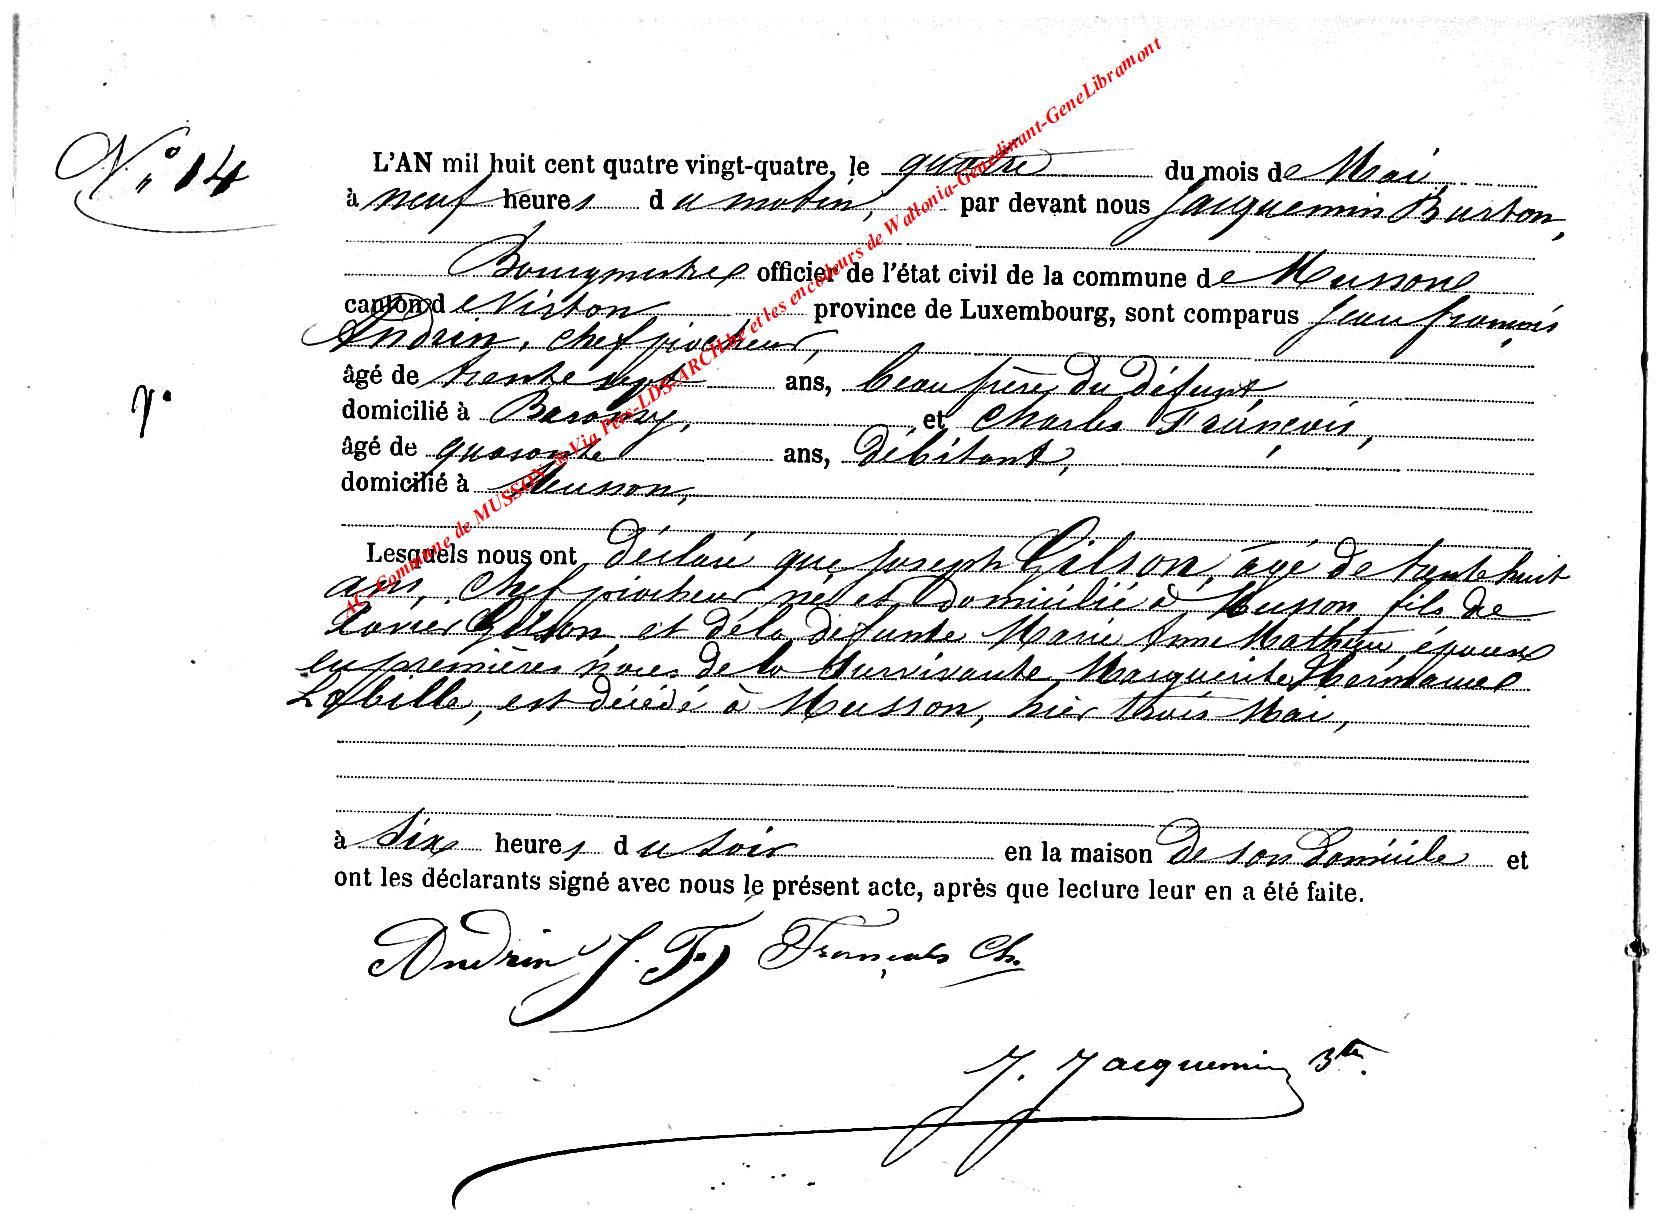 N° 14
L'AN mil huit cent quatre vingt-quatre, le quatre du mois de Mai
à neuf heures du matin, par devant nous Jacquemin Burton,
Bourgmestre officier de l'état civil de la commune de Musson
canton de Virton province de Luxembourg, sont comparus Jean françois
Andrin, chef piocheur,
âgé de trente sept ans, beau frère du défunt,
domicilié à Baranzy, et Charles François,
âgé de quarante ans, débitant,
domicilié à Musson,
Lesquels nous ont déclaré que Joseph Gilson, âgé de trente huit
ans, chef piocheur né et domicilié à Musson fils de
Xavier Gilson et de la défunte Marie Anne Mathieu époux
en premières noces de la survivante Marguerite
Labille, est décédé à Musson, hier trois Mai,
à six heures du soir en la maison de son domicile et
ont les déclarants signé avec nous le présent acte, après que lecture leur en a été faite.
Andrin J. F. François Ch.
J. Jacquemin Bton.
AC-Commune de MUSSON Via Pers-LDS-ARCH.be et les encodeurs de Wallonia-Genedinant-GeneLibramont